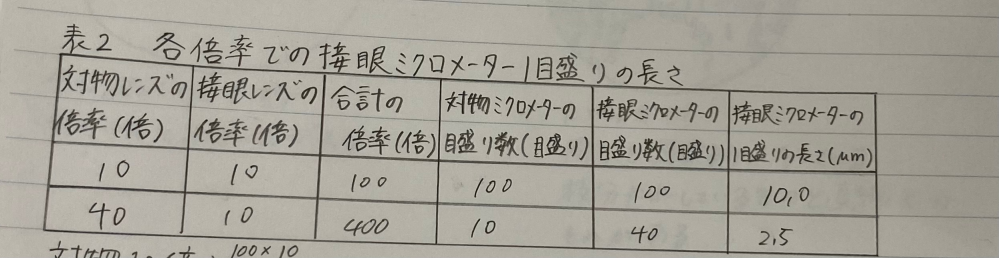 表2 各倍率での接眼ミクロメーター1目盛りの長さ
対物レンズの倍率(倍) 接眼レンズの倍率(倍) 合計の倍率(倍) 対物ミクロメーターの目盛り数(目盛り) 接眼ミクロメーターの目盛り数(目盛り) 接眼ミクロメーターの1目盛りの長さ(μm)
10 10 100 100 100 10,0
40 10 400 10 40 2,5
100×10